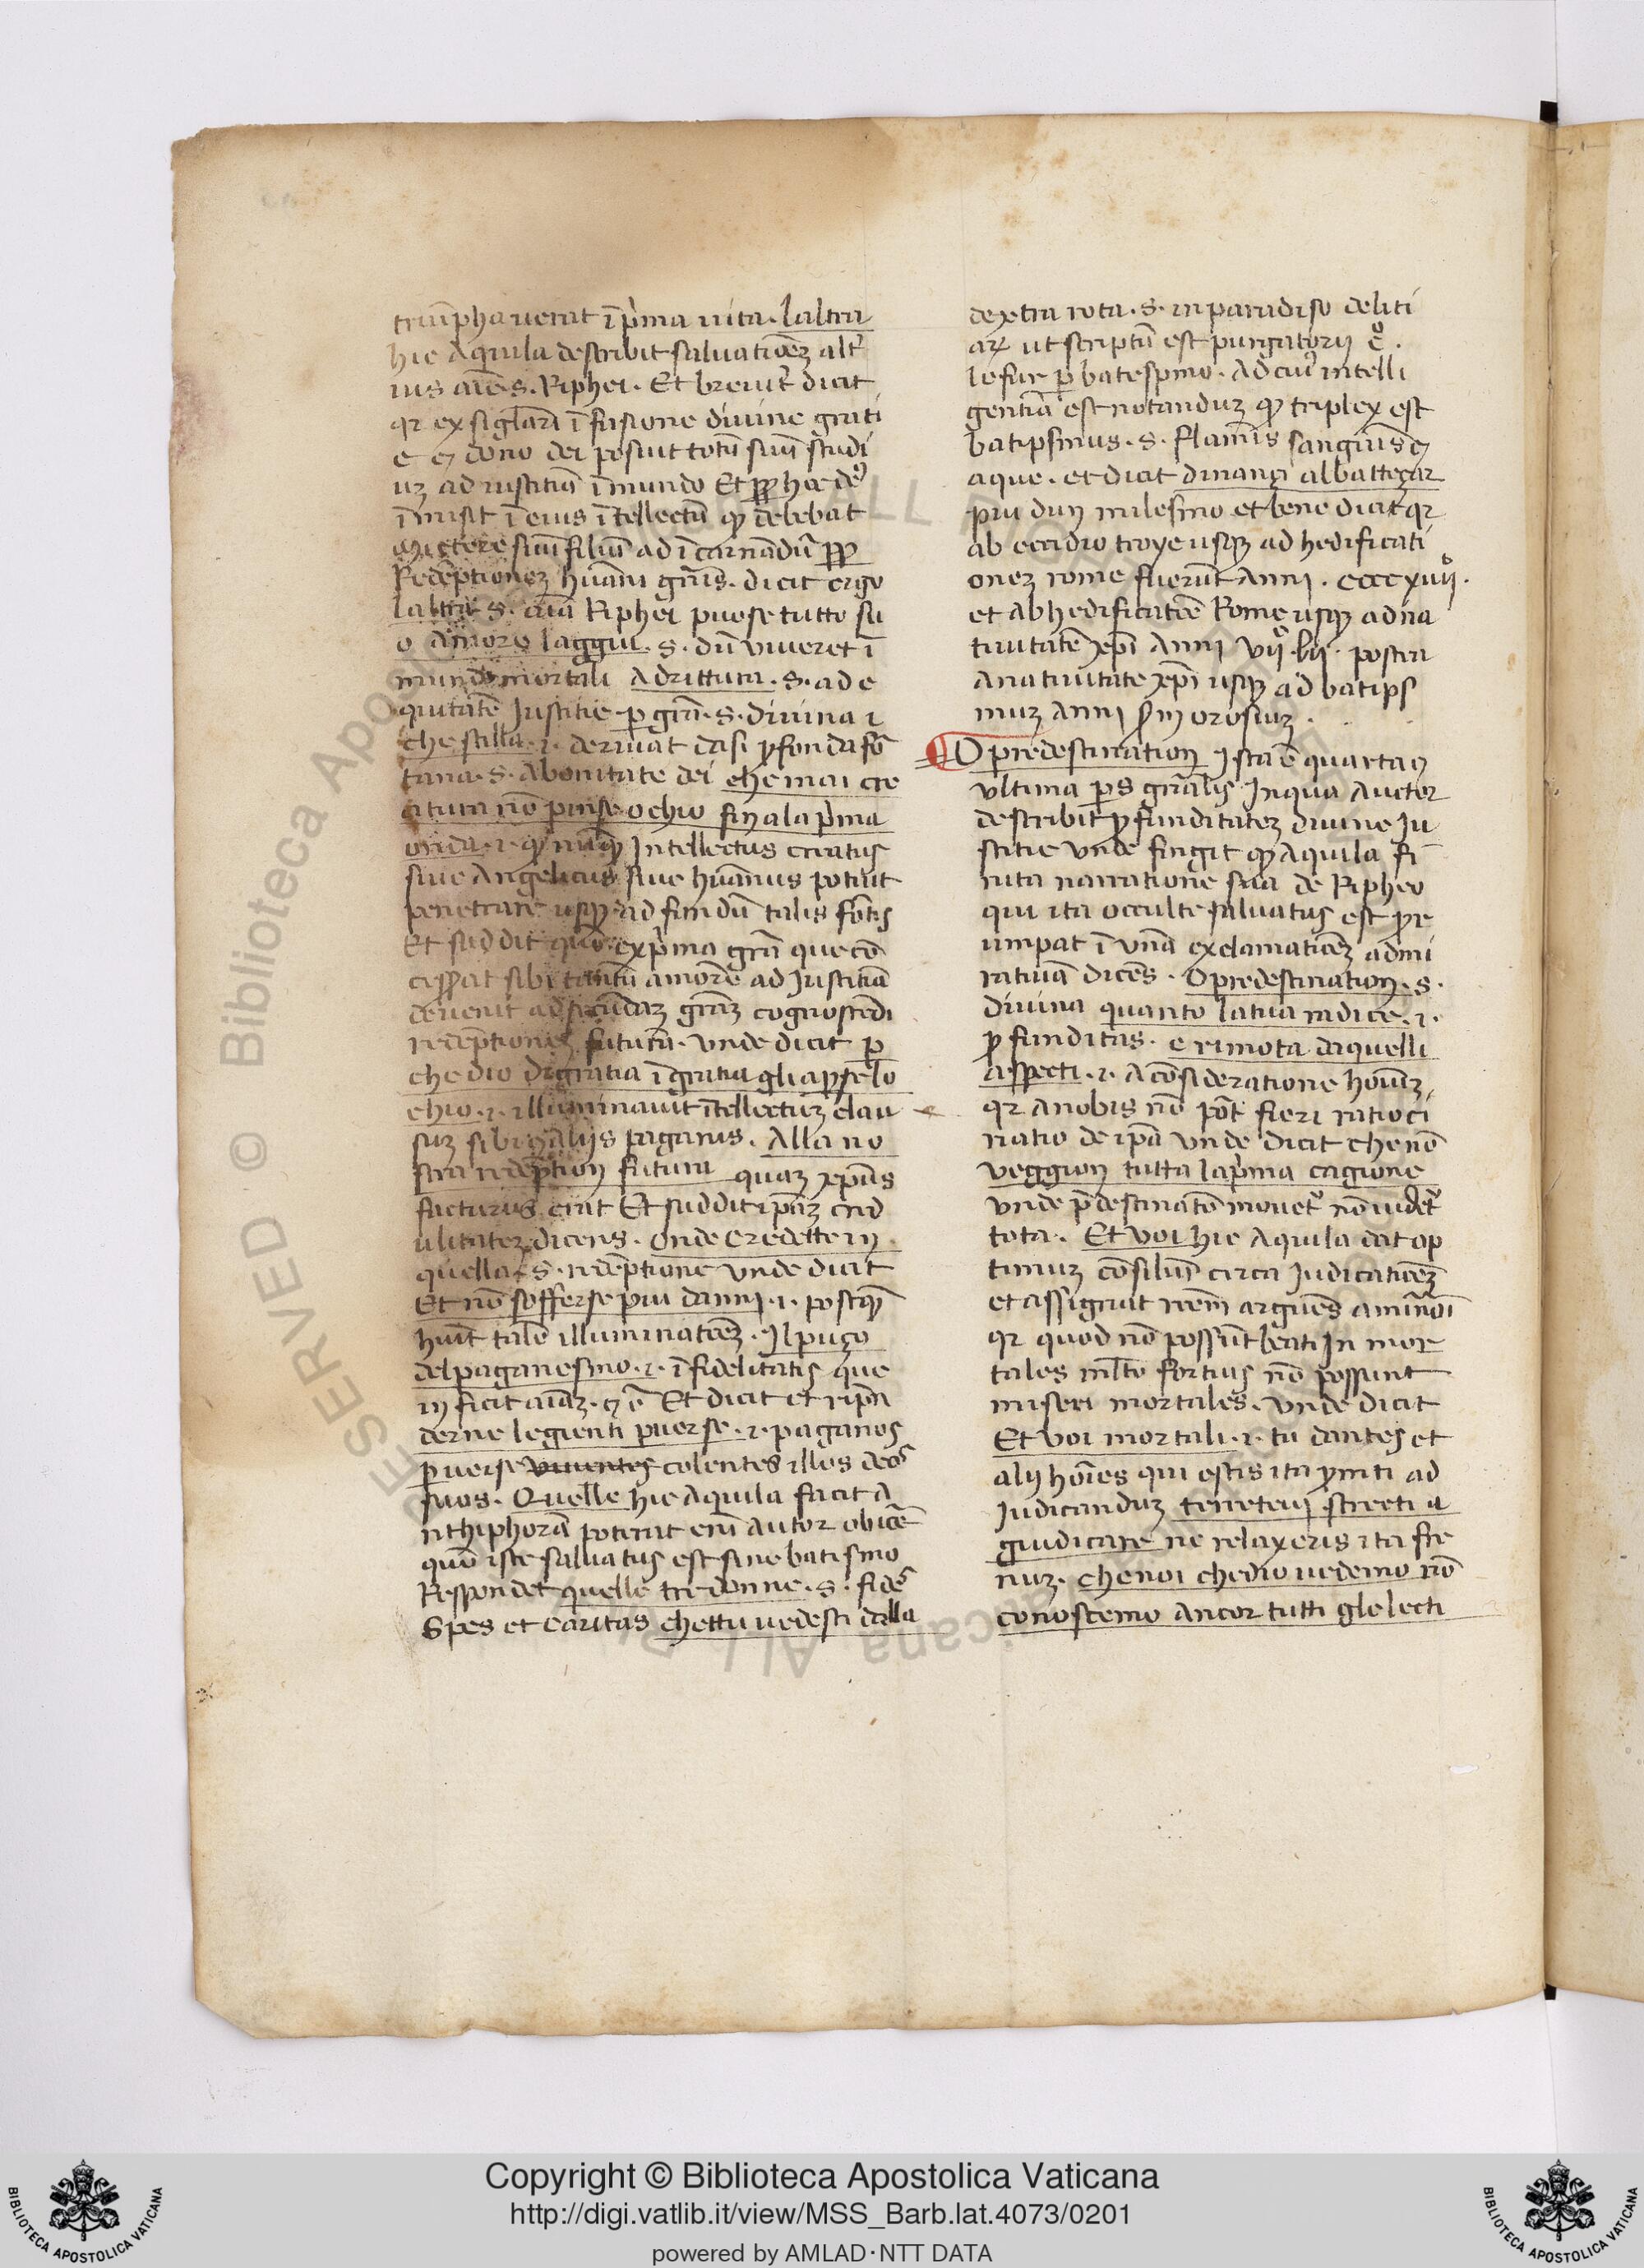 triūphauerat ī pͥma uita. laltra
hic Aquila describit saluatiōeȝ altͥ
ius aīe .s. Riphei. Et breuit̄ dicit
qr ex siglari ī fusione diuine grati
e ⁊ dono dei posuit totū suū studi
uȝ ad iustitiā ī mundo Et ꝓp hoc deꝰ
ī misit ī eius ītellectū ꝙ debebat
mictere suū filiū ad ī carnandū ꝓp
Redēptioneȝ hūani gn̄is. dicit ergo
laltra .s. aīa Riphei puose tutto su
o amore laggiu .s. dū viueret ī
mundo mortali Adrittura .s. ad e
quitatē Justitie ꝑ grām .s. diuina ⁊
che stilla .ı. deriuat dasi ꝓfonda fō
tana .s. Abonitate dei che mai cre
atura nō pinse ochio fin ala pͥma
onda .ı. ꝙ nūqȝ Intellectus creatus
siue Angelicus siue hūanus potuit
penetrare usqȝ ad fundū talis fōtis
Et suddit quō ex pͥma grā que cō
cesserat sibi tantū amorē ad Justitiā
deuenit ad secundaȝ grāȝ cognoscēdi
redēptioneȝ futurā. vnde dicit ꝑ
che dio digratia ī gratia gli apse lo
chio .ı. illuminauit ītellectuȝ clau
suȝ sibi ⁊ aliis paganis. Alla no
stra redēption futura quaȝ xp̄us
facturus erat Et suddit ip̄aȝ cred
ulitateȝ dicens. onde credette in
quella .s. redēptione vnde dicit
Et nō sofferse piu danni .ı. postqȝ
huit talē illuminatōeȝ. Il puço
del paganesmo .ı. ī fidelitatis que
in ficit aīaȝ. ⁊ ē Et dicit et ripn̄
derne legienti puerse .ı. paganos
ꝑuerse viuentes colentes illos deos
suos. Quelle hic Aquila facit A
nthiphorā poterat enī autor obicē
quō iste saluatus est sine batismo
Respondet quelle tre donne .s. fides
Spes et caritas chettu uedesti dalla
dextra rota .s. in paradiso deliti
aꝝ ut scriptū est purgatorii
le fur ꝑ batespmo. Ad cuiꝰ intelli
gentiā est notanduȝ ꝙ triplex est
batipsmus .s. flamīs sanguīs ⁊
aque. et dicit dinançi albatteçar
piu dun milesmo et bene dicit qr
ab excidio troye usqȝ ad hedificati
oneȝ rome fuerūt Anni. ccccxiiii.
et ab hedificatiōe Rome usqȝ ad na
tiuitatē xp̄i Anni vii.lii. postea
A natiuitate xp̄i usqȝ ad batips
muȝ Anni
O predestination Ista ē quarta ⁊
vltima ps gn̄alis In qua Auctor
describit ꝓfunditateȝ diuine Iu
stitie vnde fingit ꝙ Aquila fi
nita narratione sua de Ripheo
qui ita occulte saluatus est ꝓr
umpat ī vnā exclamatiōeȝ admi
ratiuā dicēs. O predestination .s.
diuina quanto la tua radice .ı.
ꝓfunditas. e rimota daquelli
aspecti .ı. A cōsideratione hoīuȝ
qr a nobis nō pōt fieri ratioci
natio de ip̄a vnde dicit che nō
veggion tutta la pͥma cagione
vnde p̄destinatō mouetͬ nō uidetͬ
tota. Et voi hic Aquila dat op
timuȝ cōsiliū circa Iudicatiōeȝ
et assignat rōem arguēs a minori
qr quod nō possūt beati In mor
tales ml̄to fortius nō possunt
miseri mortales. vnde dicit
Et voi mortali .ı. tu dantes et
alij hoīes qui estis ita ꝓmti ad
Iudicanduȝ teneteui strecti a
giudicare ne relaxeris ita fre
nuȝ. che noi che dio uedemo nō
conoscemo Ancor tutti gle lecti
© Biblioteca Apostolica Vaticana ALL RIGHTS RESERVED
Copyright © Biblioteca Apostolica Vaticana
http://digi.vatlib.it/view/MSS_Barb.lat.4073/0201
powered by AMLAD·NTT DATA
BIBLIOTECA APOSTOLICA VATICANA
BIBLIOTECA APOSTOLICA VATICANA